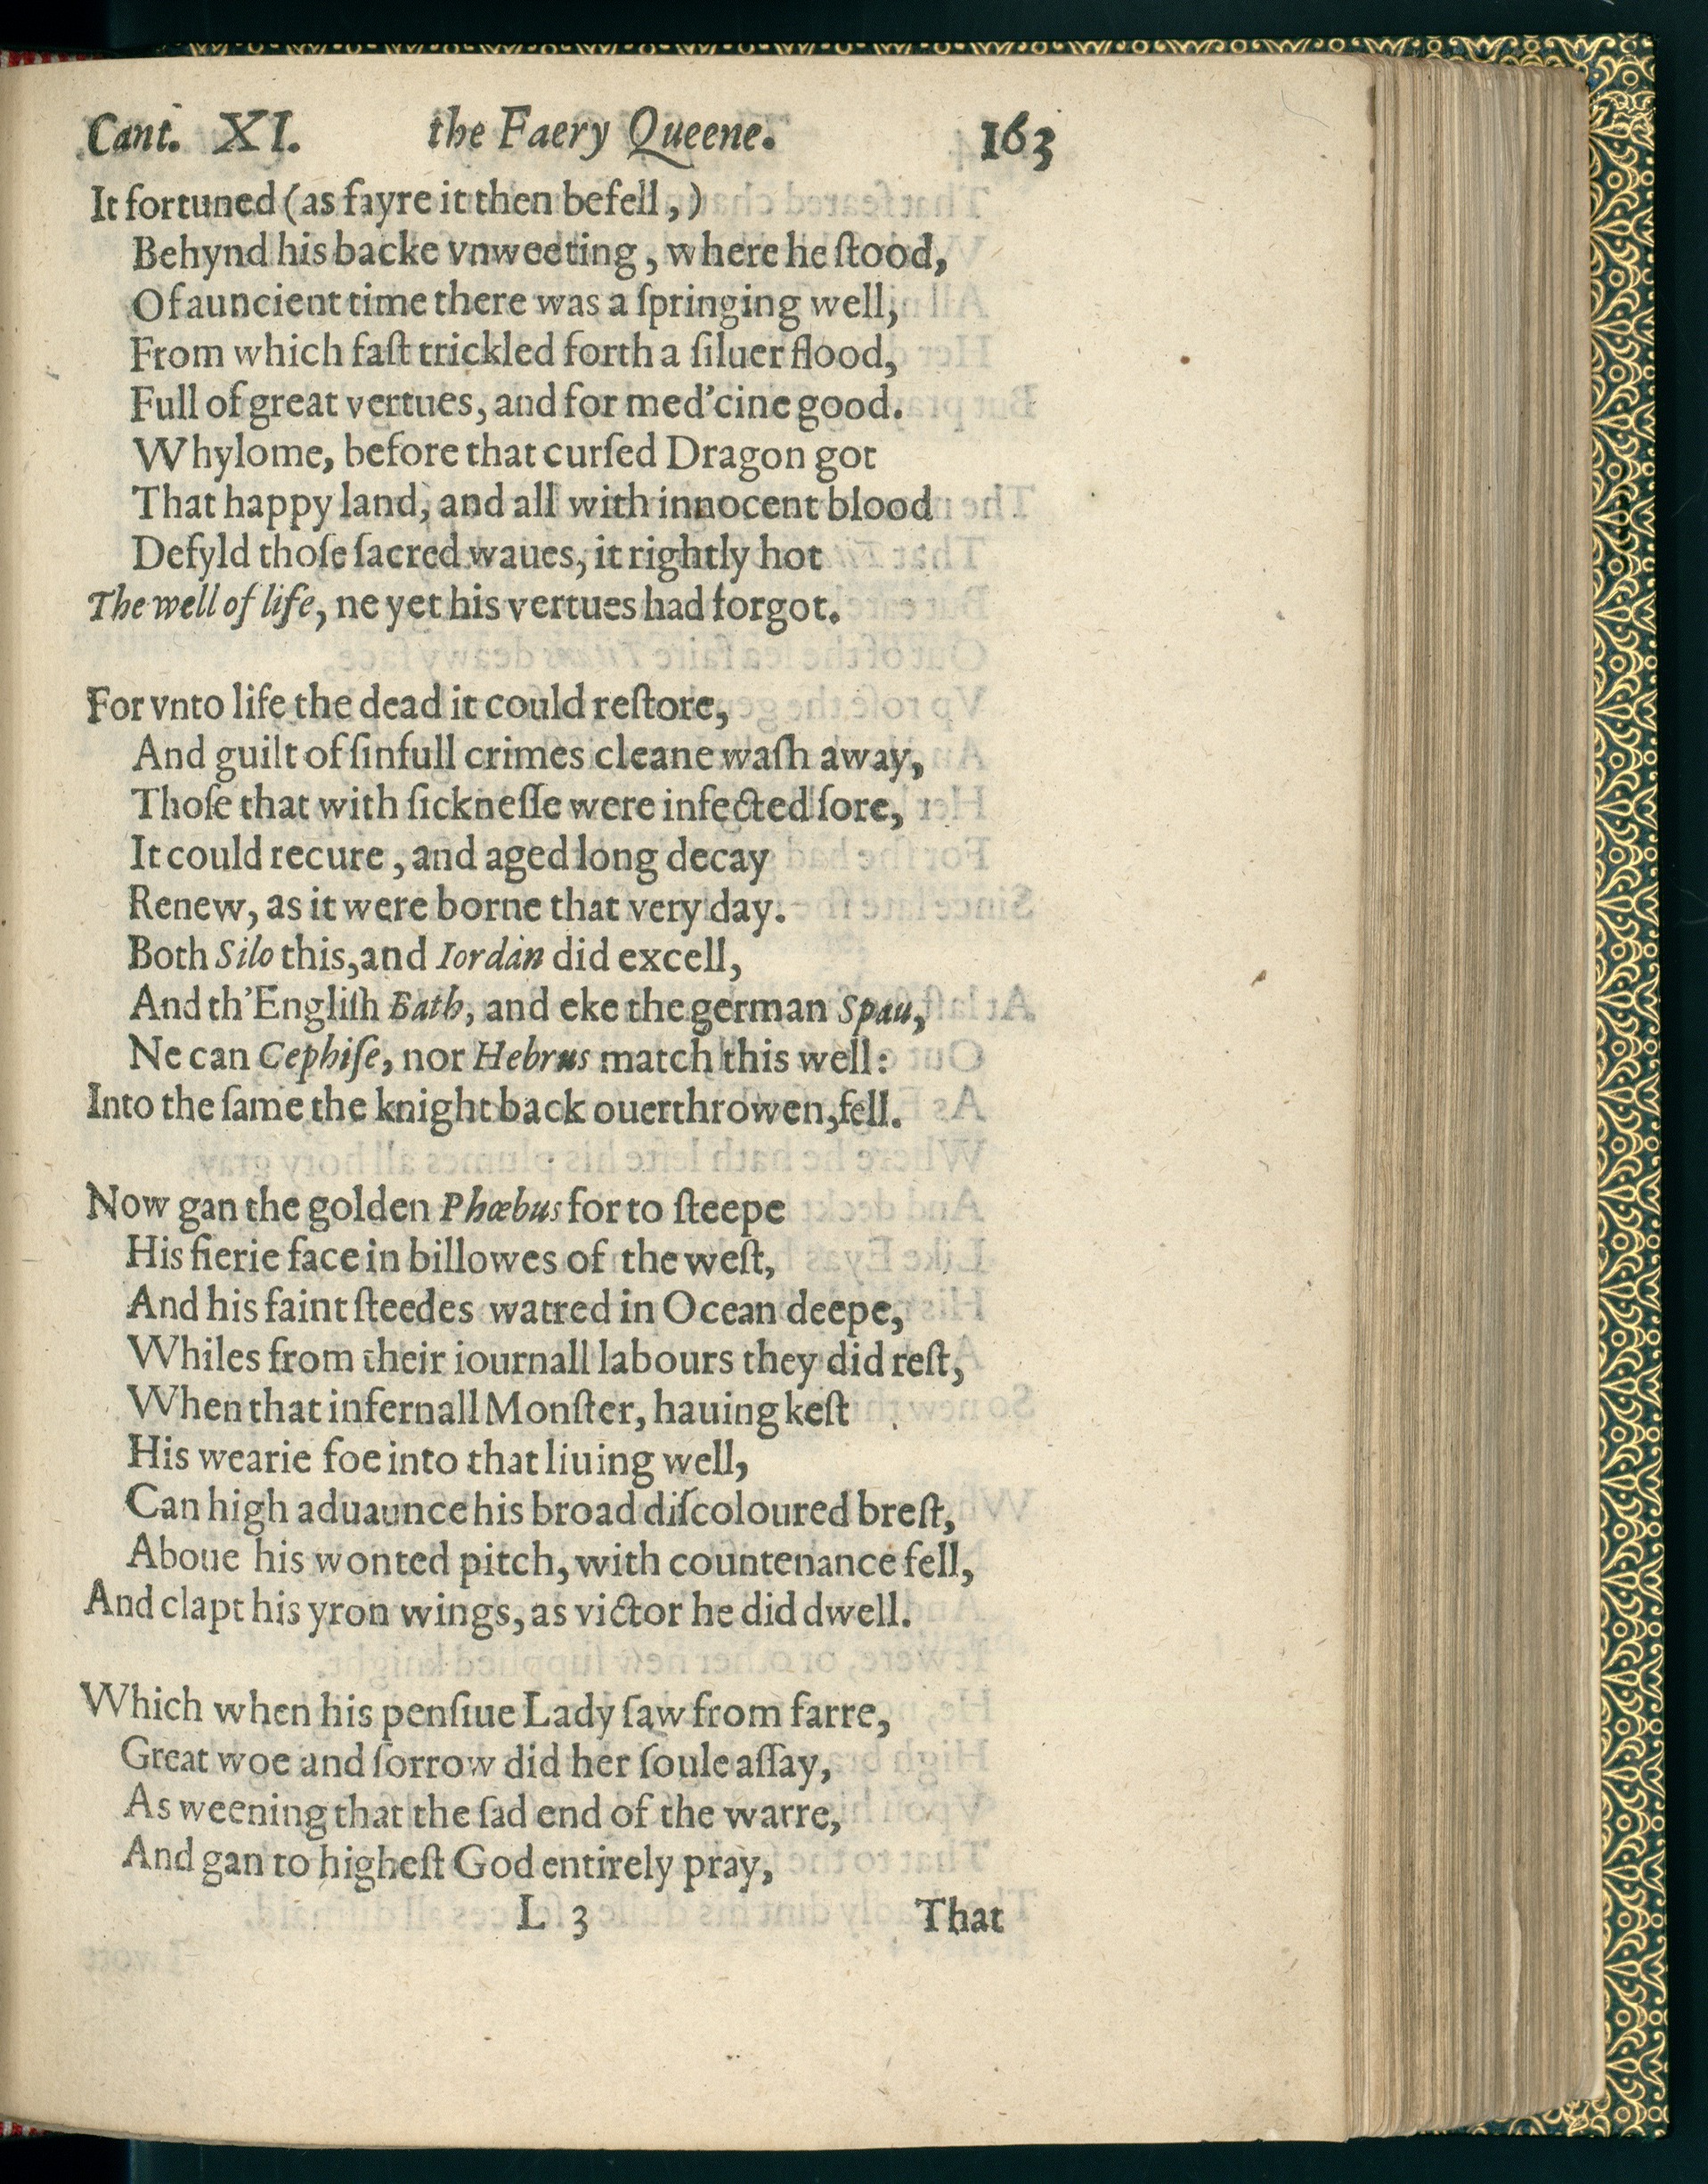 Cant. XI. the Faery Queene. 163
It fortuned (as fayre it then befell,)
Behynd his backe vnweeting, where he ſtood,
Of auncient time there was a ſpringing well,
From which faſt trickled forth a ſiluer flood,
Full of great vertues, and for med'cine good.
Whylome, before that curſed Dragon got
That happy land, and all with innocent blood
Defyld thoſe ſacred waues, it rightly hot
The well of life, ne yet his vertues had forgot.
For vnto life the dead it could reſtore,
And guilt of ſinfull crimes cleane waſh away,
Thoſe that with ſickneſſe were infected ſore,
It could recure, and aged long decay
Renew, as it were borne that very day.
Both Silo this, and Iordan did excell,
And th'Engliſh Bath, and eke the german Spau,
Ne can Cephiſe, nor Hebrus match this well:
Into the ſame the knight back ouerthrowen, fell.
Now gan the golden Phœbus for to ſteepe
His fierie face in billowes of the weſt,
And his faint ſteedes watred in Ocean deepe,
Whiles from their iournall labours they did reſt,
When that infernall Monſter, hauing keſt
His wearie foe into that liuing well,
Can high aduaunce his broad diſcoloured breſt,
Aboue his wonted pitch, with countenance fell,
And clapt his yron wings, as victor he did dwell.
Which when his penſiue Lady ſaw from farre,
Great woe and ſorrow did her ſoule aſſay,
As weening that the ſad end of the warre,
And gan to higheſt God entirely pray,
L 3 That